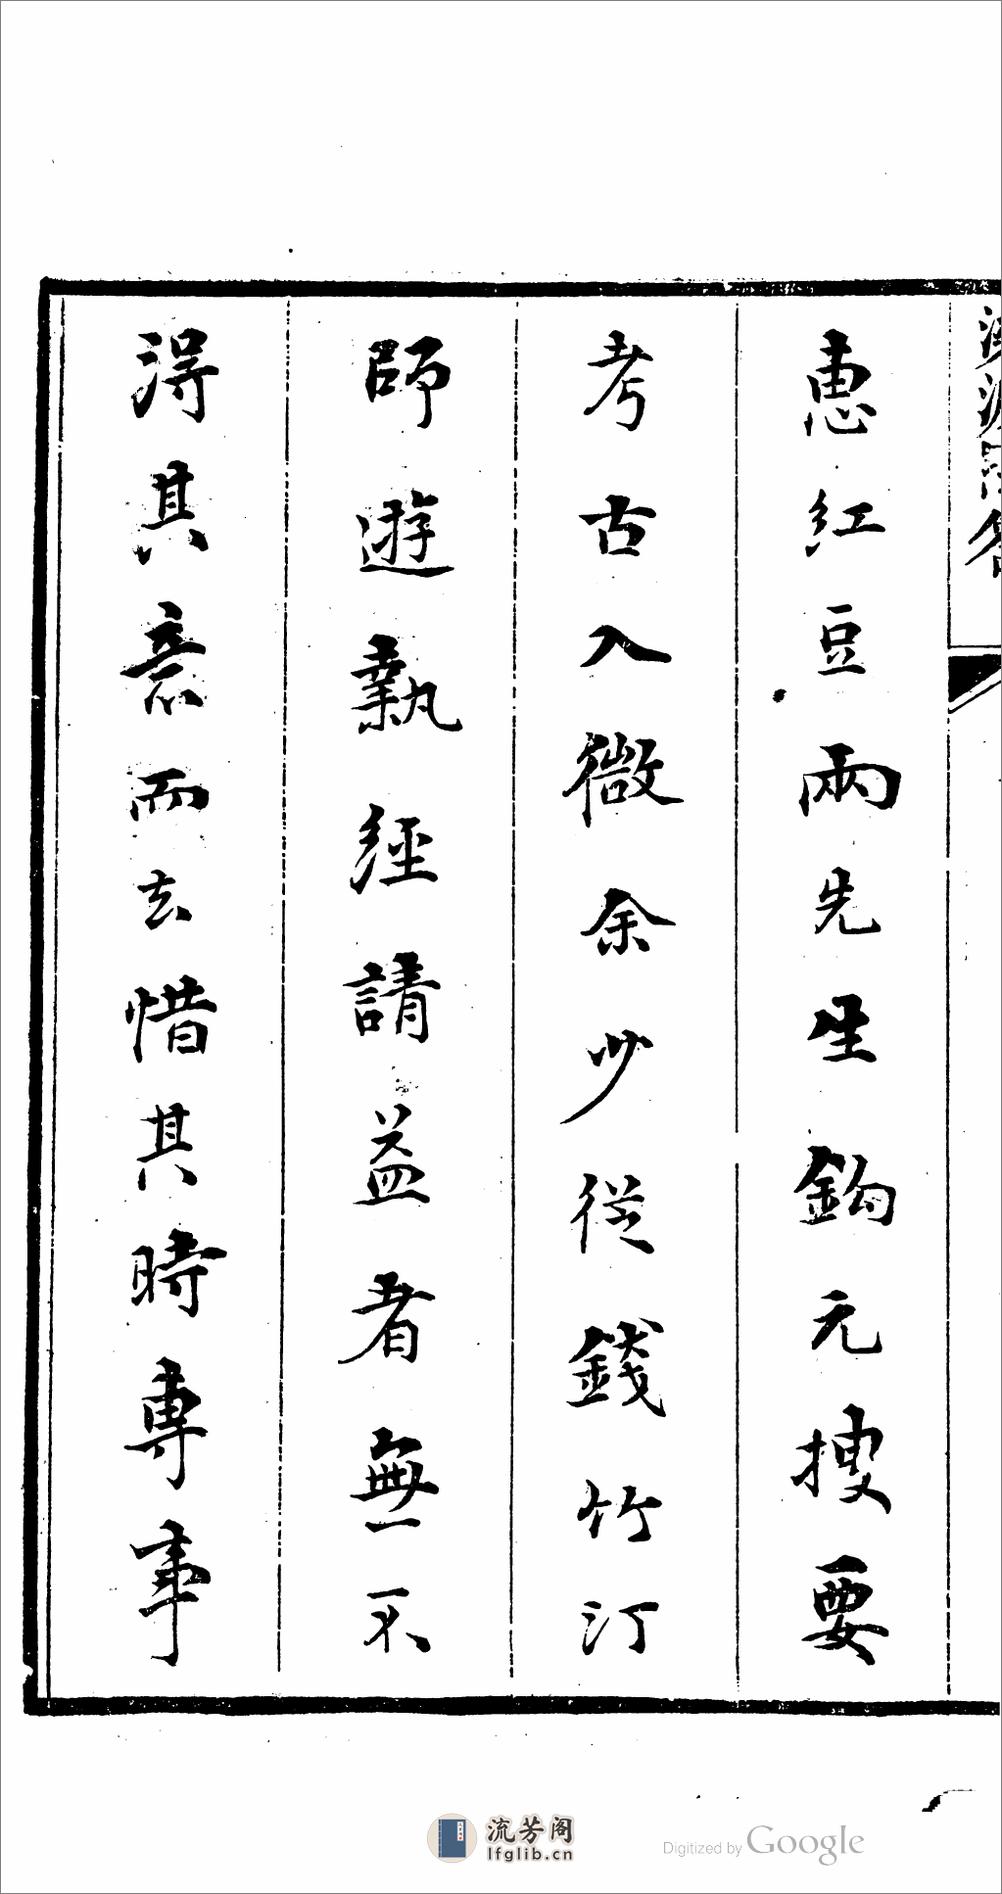 惠紅豆兩先生鈎元搜要
考古入微余少從錢竹汀
師遊執經請益者無不
得其意而去惜其時專事
流芳阁
lfglib.cn
Digitized by Google